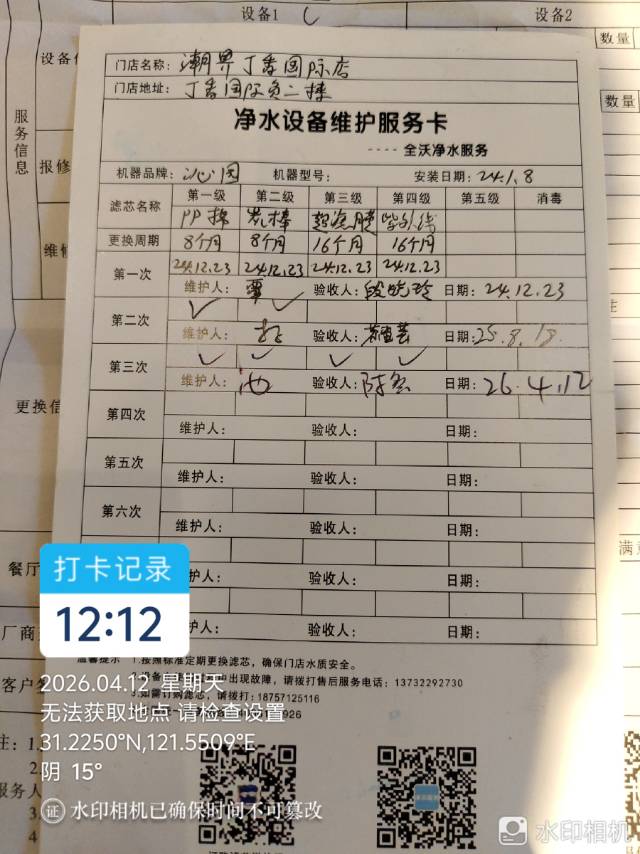 设备1
设备2
数量
设备
门店名称：潮界丁香国际店
门店地址：丁香国际负二楼
数量
净水设备维护服务卡
---- 全沃净水服务
服务信息
报修
机器品牌：沁园 机器型号： 安装日期：24.1.8
滤芯名称 第一级 第二级 第三级 第四级 第五级 消毒
PP棉 炭棒
维修
更换周期 8个月 8个月 16个月 16个月
第一次 24.12.23 24.12.23 24.12.23 24.12.23
维护人： 验收人：段晓玲 日期：24.12.23
第二次 ✓ ✓
维护人： 验收人： 日期：25.8.18.
第三次 ✓ ✓ ✓ ✓
维护人： 验收人： 日期：26.4.12
更换信
第四次
维护人： 验收人： 日期：
第五次
维护人： 验收人： 日期：
第六次
维护人： 验收人： 日期：
满意
打卡记录
12:12
餐厅
护人： 验收人： 日期：
厂商
护人： 验收人： 日期：
温馨提示 1.按照标准定期更换滤芯，确保门店水质安全。
中出现故障，请拨打售后服务电话：13732292730
3.如需订购滤芯，请拨打：18757125116
926
客户签
2026.04.12 星期天
无法获取地点 请检查设置
31.2250°N,121.5509°E
阴 15°
注：1.
2.
服务人
3.
4
证 水印相机已确保时间不可篡改
水印相机